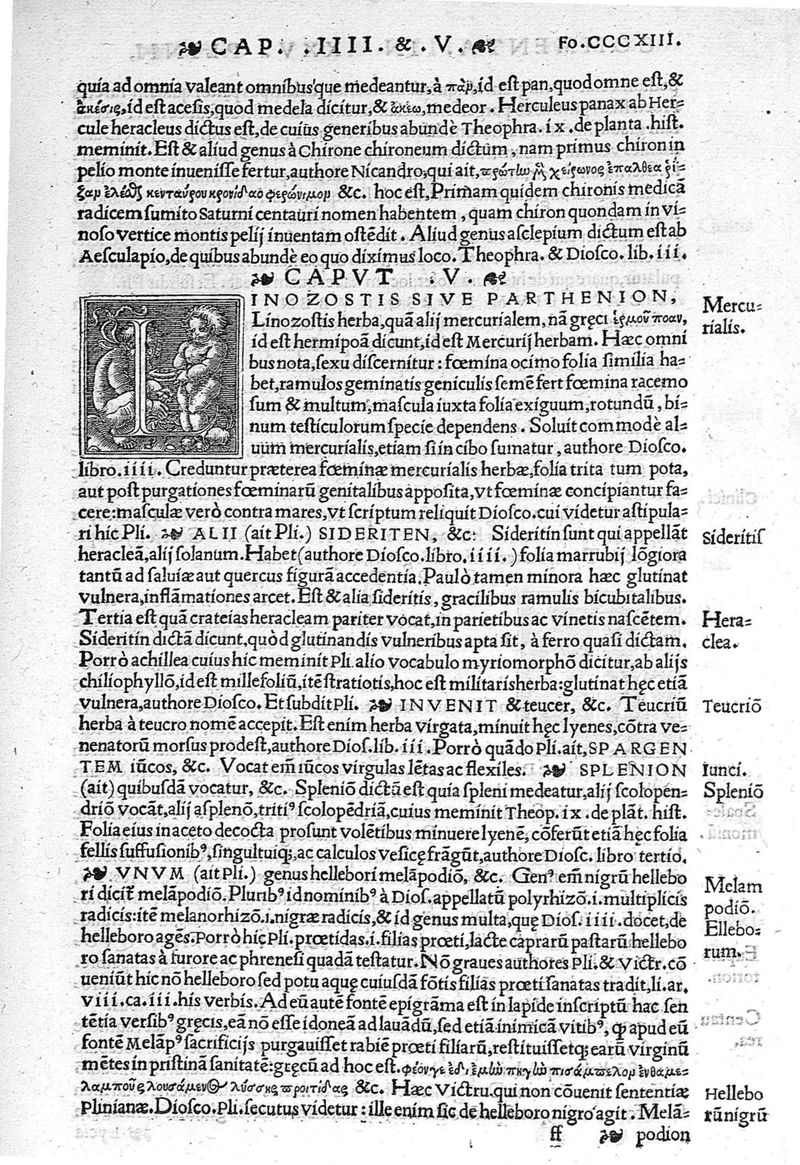 CAP. .IIII. &. V. Fo.CCCXIII.
quia ad omnia valeant omnibusque medeantur, à πᾶρ, id est pan, quod omne est, &
ἄκεσις, id est acesis, quòd medela dicitur, & ἀκέω, medeor. Herculeus panax ab Her=
cule heracleus dictus est, de cuius generibus abundè Theophra. ix. de planta. hist.
meminit. Est & aliud genus à Chirone chironeum dictum, nam primus chiron in
pelio monte inuenisse fertur, authore Nicandro, qui ait, χείρωνος ἐπαλθέα ῥί=
ζαρ κενταύρου κρονίδαο φερώνιμορ &c. hoc est, Primam quidem chironis medicā
radicem sumito Saturni centauri nomen habentem, quam chiron quondam in vi=
noso vertice montis pelij inuentam ostēdit. Aliud genus asclepium dictum est ab
Aesculapio, de quibus abundè eo quo diximus loco. Theophra. & Diosco. lib. iii.
CAPVT .V.
INOZOSTIS SIVE PARTHENION,
Linozostis herba, quā alij mercurialem, nā gręci ἑρμοῦ ποαν,
id est hermipoā dicunt, id est Mercurij herbam. Hæc omni
bus nota, sexu discernitur: fœmina ocimo folia similia ha=
bet, ramulos geminatis geniculis semē fert fœmina racemo
sum & multum, mascula iuxta folia exiguum, rotundū, bi=
num testiculorum specie dependens. Soluit commodè al=
uum mercurialis, etiam si in cibo sumatur, authore Diosco.
libro. iiii. Creduntur præterea fœminæ mercurialis herbæ, folia trita tum pota,
aut post purgationes fœminarū genitalibus apposita, vt fœminæ concipiantur fa=
cere: masculæ verò contra mares, vt scriptum reliquit Diosco. cui videtur astipula=
ri hic Pli. ALII (ait Pli.) SIDERITEN, &c: Sideritin sunt qui appellāt
heracleā, alij solanum. Habet (authore Diosco. libro. iiii.) folia marrubij lōgiora
tantū ad saluiæ aut quercus figurā accedentia, Paulò tamen minora hæc glutinat
vulnera, inflāmationes arcet. Est & alia sideritis, gracilibus ramulis bicubitalibus.
Tertia est quā crateias heracleam pariter vocat, in parietibus ac vinetis nascētem.
Sideritin dictā dicunt, quòd glutinandis vulneribus apta sit, à ferro quasi dictam.
Porrò achillea cuius hic meminit Pli. alio vocabulo myriomorphō dicitur, ab alijs
chiliophyllō, id est millefoliū, itē stratiotis, hoc est militaris herba: glutinat hęc etiā
vulnera, authore Diosco. Et subdit Pli. INVENIT & teucer, &c. Teucriū
herba à teucro nomē accepit. Est enim herba virgata, minuit hęc lyenes, cōtra ve=
nenatorū morsus prodest, authore Dios. lib. iii. Porrò quādo Pli. ait, SPARGEN
TEM iūcos, &c. Vocat em̄ iūcos virgulas lētas ac flexiles. SPLENION
(ait) quibusdā vocatur, &c. Spleniō dictā est quia spleni medeatur, alij scolopen=
driō vocāt, alij asplenō, tritiꝰ scolopēdriā, cuius meminit Theop. ix. de plāt. hist.
Folia eius in aceto decocta prosunt volētibus minuere lyenē, cōferūt etiā hęc folia
fellis suffusionibꝰ, singultuiq; ac calculos vesicę frāgūt, authore Diosc. libro tertio.
VNVM (ait Pli.) genus hellebori melāpodiō, &c. Genꝰ em̄ nigrū hellebo
ri dicit᷑ melāpodiō. Pluribꝰ id nominibꝰ à Dios. appellatū polyrhizō. i. multiplicis
radicis: itē melanorhizō. i. nigræ radicis, & id genus multa, quę Dios. iiii. docet, de
helleboro agēs. Porrò hic Pli. prœtidas. i. filias prœti, lacte caprarū pastarū hellebo
ro sanatas à furore ac phrenesi quadā testatur. Nō graues authores Pli. & Victr. cō
ueniūt hic nō helleboro sed potu aquę cuiusdā fōtis filias prœti sanatas tradit, li. ar.
viii. ca. iii. his verbis. Ad eū autē fontē epigrāma est in lapide inscriptū hac sen
tētia versibꝰ gręcis, eā nō esse idoneā ad lauādū, sed etiā inimicā vitibꝰ, ꝙ apud eū
fontē Melāpꝰ sacrificijs purgauisset rabiē prœti filiarū, restituissetq; earū virginū
mētes in pristinā sanitatē: gręcū ad hoc est.
λαμποῦς λουσάμενος λύσσης προιτίδας &c. Hæc Victru. qui non cōuenit sententiæ
Plinianæ. Diosco. Pli. secutus videtur: ille enim sic de helleboro nigro agit. Melā=
ff podion
Mercu=
rialis.
Sideritis
Hera=
clea.
Teucriō
Iunci.
Spleniō
Melam
podiō.
Ellebo=
rum.
Hellebo
rū nigrū